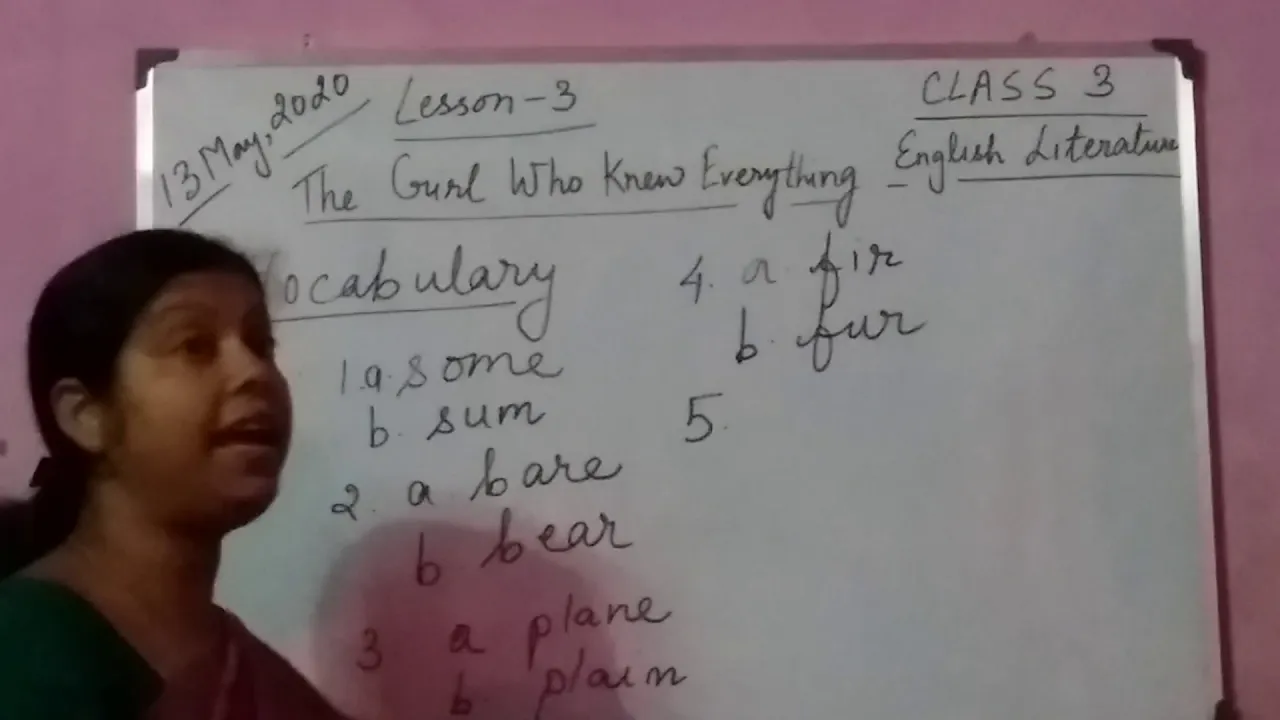 13 May, 2020
Lesson-3
CLASS 3
English Literature
The Girl Who Knew Everything
ocabulary
1. a. some
b. sum
2. a bare
b bear
3 a plane
b. plain
4. a. fir
b. fur
5.